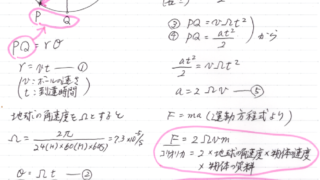 P Q
PQ = rθ
r = vt — ①
(v：ボールの速さ
t：到達時間)
地球の角速度をΩとすると
Ω = 2π / 24(h)×60(m)×60(s) = 7.3×10⁻⁵/s
θ = Ωt — ②
③ PQ = vΩt²
④ PQ = at²/2 から
at²/2 = vΩt²
a = 2Ωv — ⑤
F = ma (運動方程式より)
F = 2Ωvm
コリオリ力 = 2 × 地球の角速度 × 物体の速度
× 物体の質量